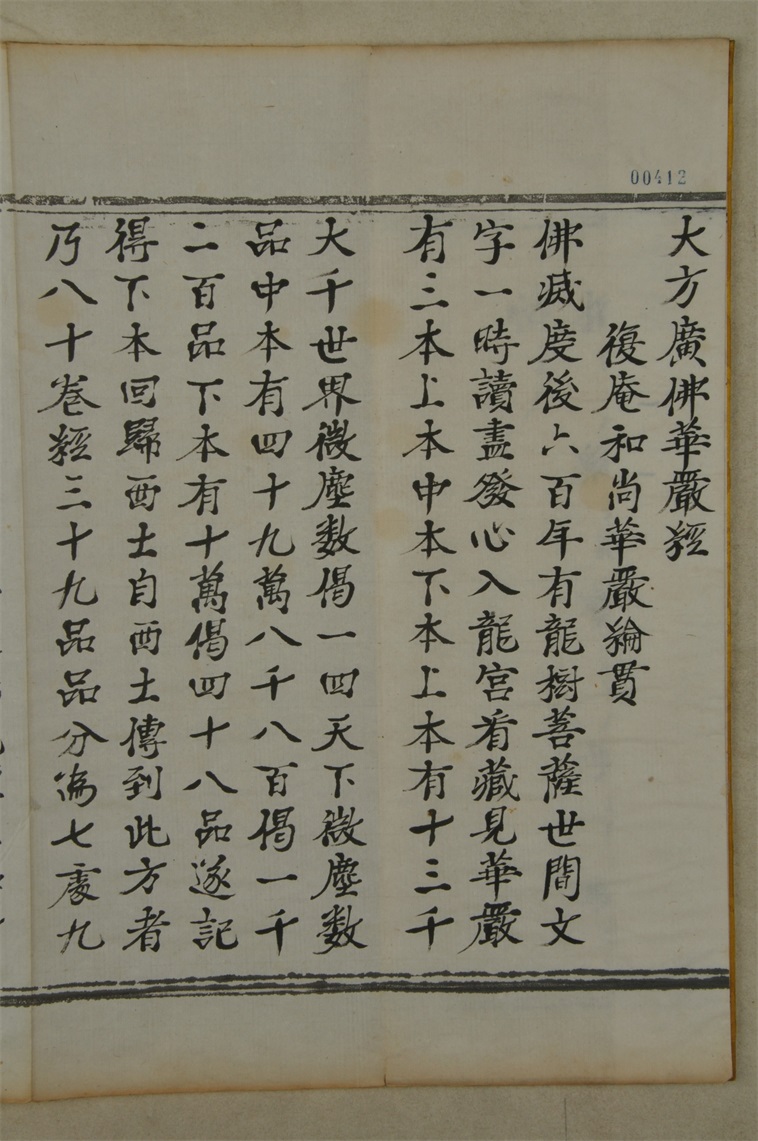 00412
大方廣佛華嚴經
復庵和尚華嚴綸貫
佛滅度後六百年有龍樹菩薩世間文
字一時讀盡發心入龍宮看藏見華嚴
有三本上本中本下本上本有十三千
大千世界微塵數偈一四天下微塵數
品中本有四十九萬八千八百偈一千
二百品下本有十萬偈四十八品遂記
得下本回歸西土自西土傳到此方者
乃八十卷經三十九品品分為七處九